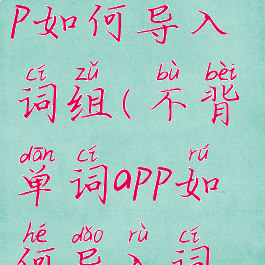 P如何导入
cí zǔ bù bèi
词组(不背
dān cí rú
单词app如
hé dǎo rù cí
何导入词